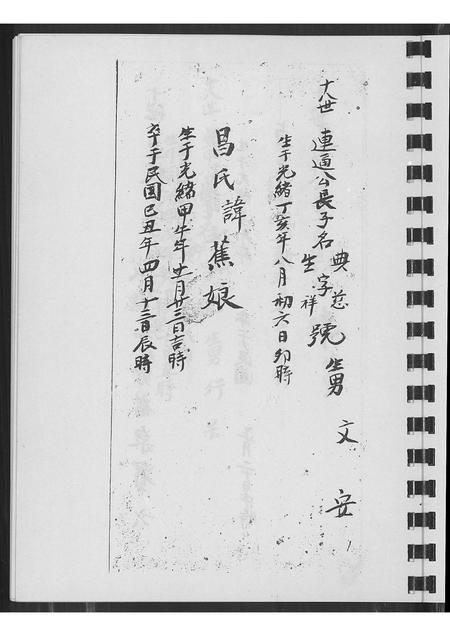 十八世 連通公長子名典慈
生字祥號生男文安
生于光緒丁亥年八月初六日卯時
昌氏諱蕉娘
生于光緒甲午年十一月廿三日吉時
卒于民國己丑年四月十三日辰時